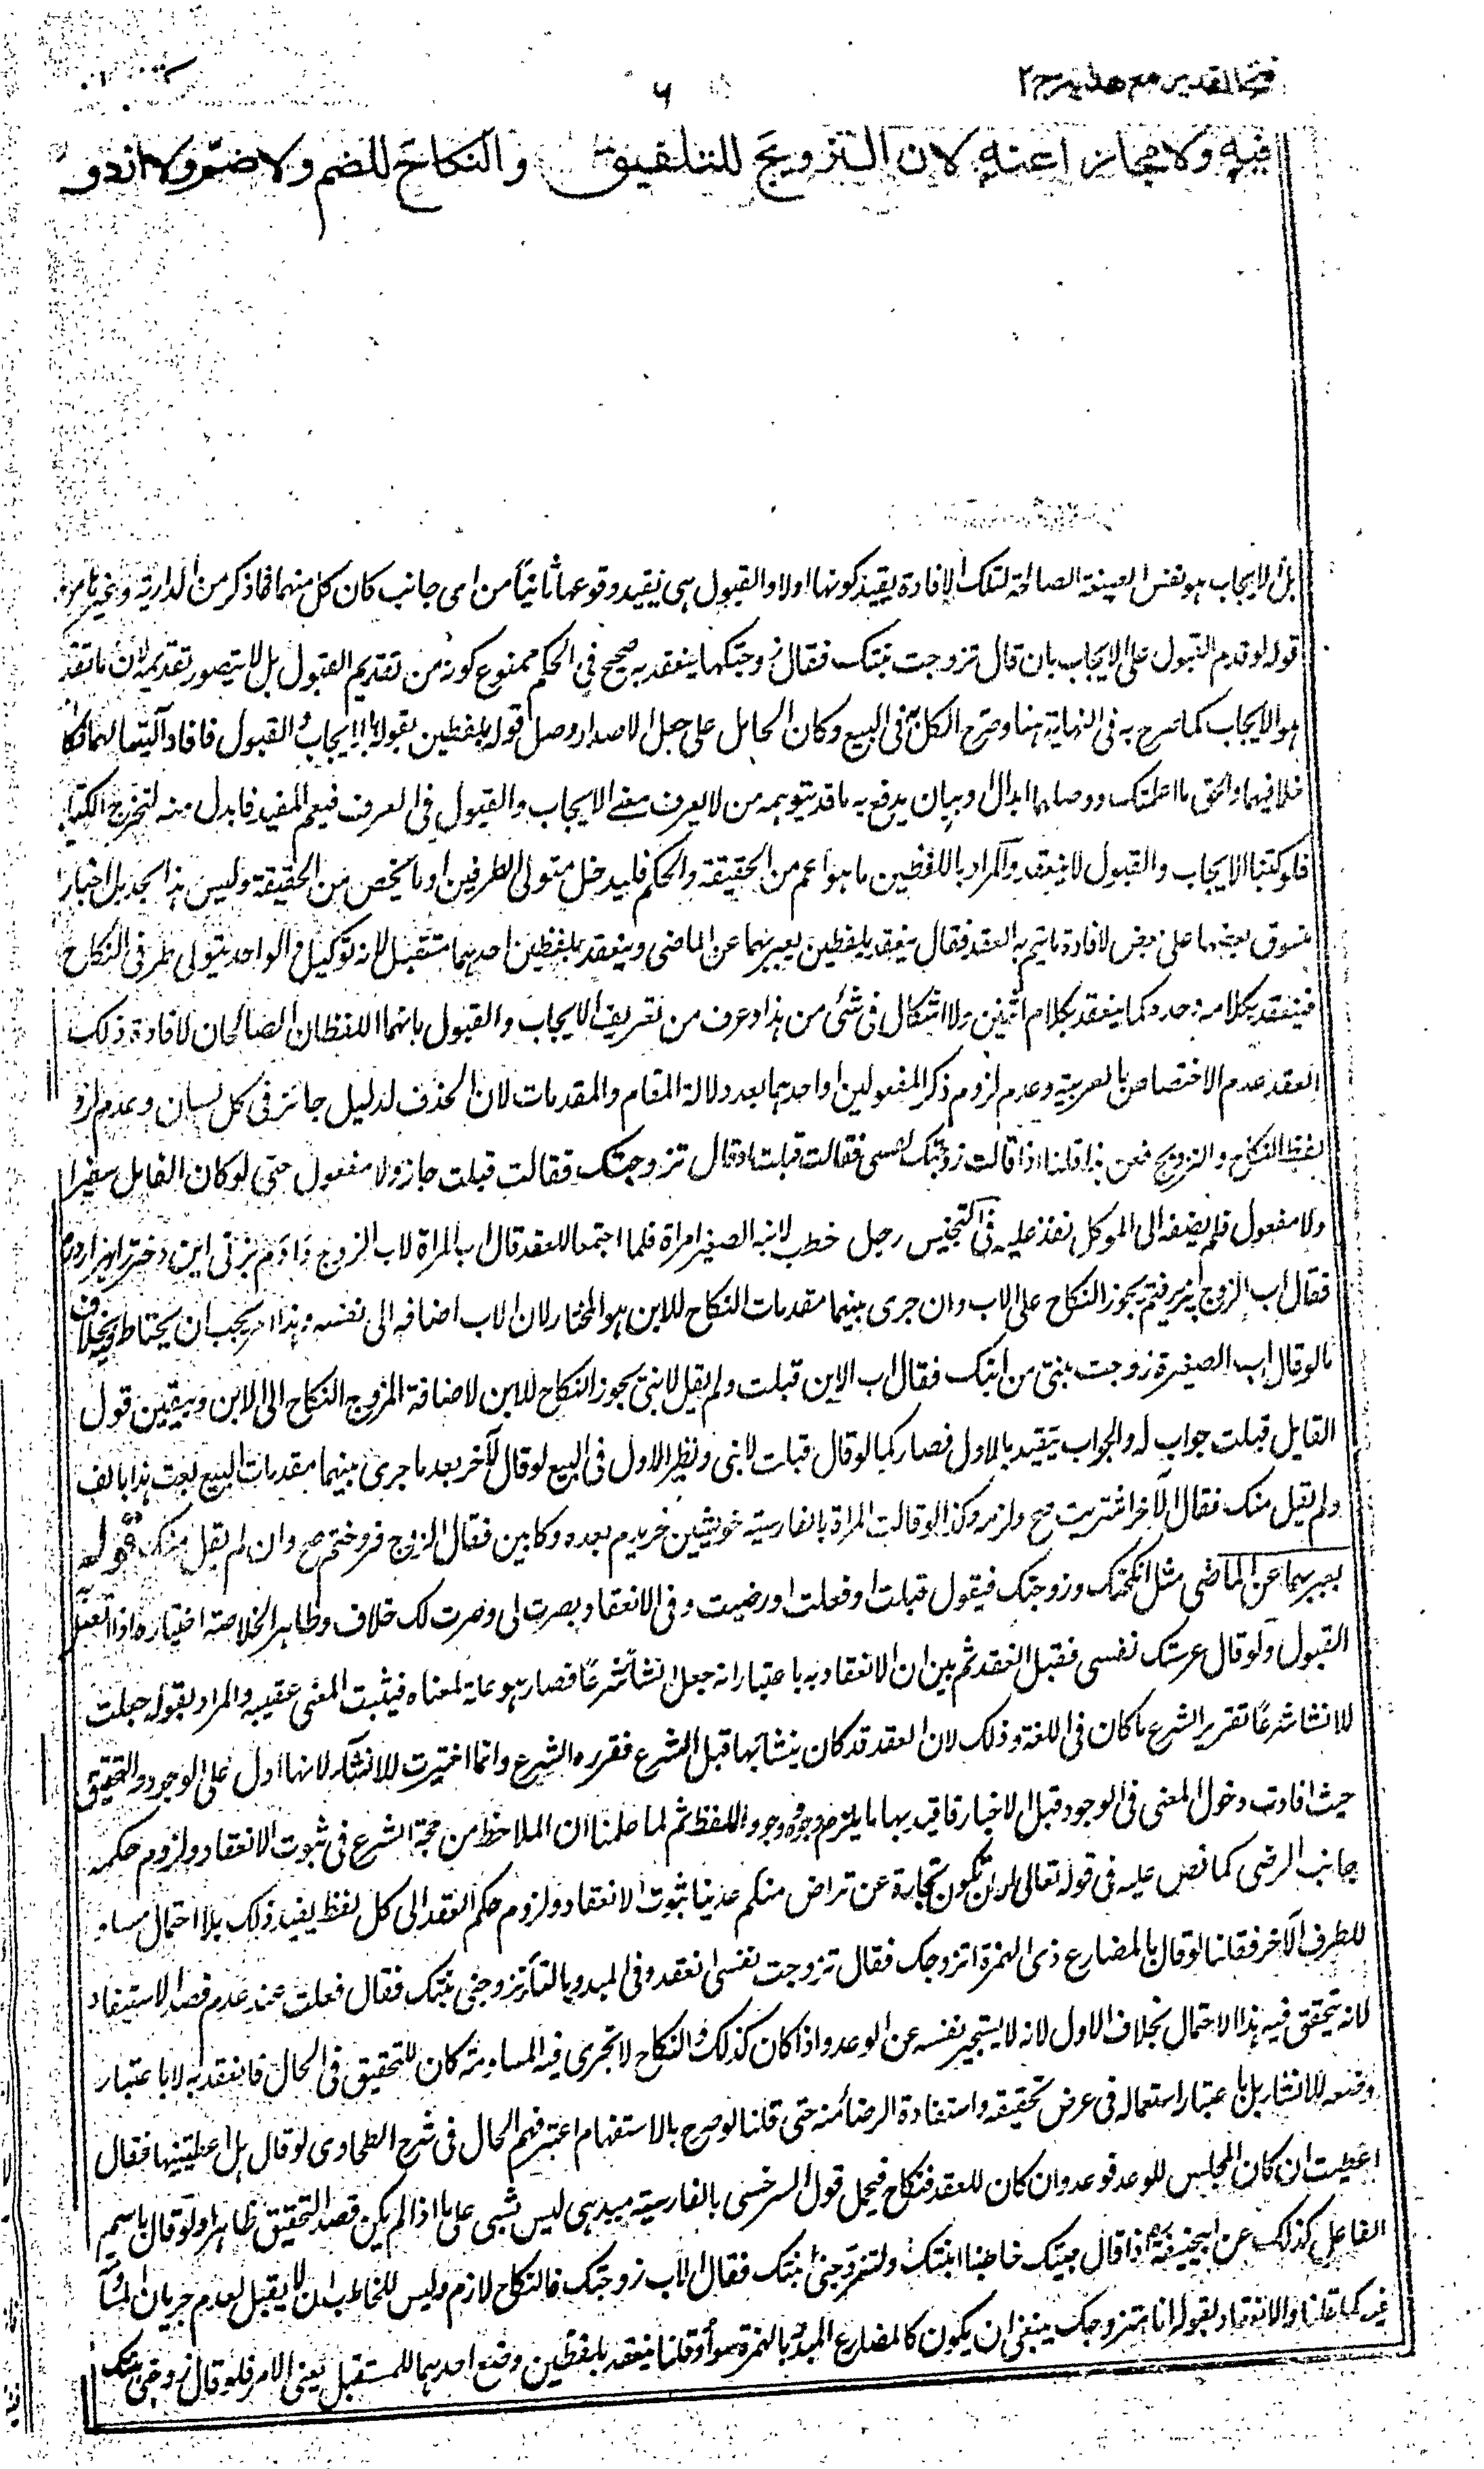 فتح القدير مع هدايه ج ٢
٦
فيه ولا مجاز اعنه لان التزويج للتلفيق والنكاح للضم ولا ضم ولا ازدو
بل الايجاب هو نفس الصيغة الصالحة لتلك الافادة بقيد كونها اولا والقبول هى بقيد وقوعها ثانيا من اى جانب كان كل منهما فما ذكر من الدراية وغيره من
قوله لو قدم القبول على الايجاب بان قال تزوجت بنتك فقال زوجتكها ينعقد به صحيح فى الحكم ممنوع كونه من تقديم القبول بل لا يتصور تقديمه لان ما تقدم
هو الايجاب كما صرح به فى النهاية هنا وصرح الكل به فى البيع وكان الحامل على جعل الاصدار وصل قوله بلفظين بقوله بالايجاب والقبول فافاد آليتهما لهما فكا
خلافيهما والحق ما اعلمتك ووصلهما ابدال وبيان يدفع به ما قد يتوهمه من لا يعرف معنى الايجاب والقبول فى العرف فيعم المفيد فابدل منه لتخرج الكتابة
فلو كتبنا الايجاب والقبول لا ينعقد والمراد باللفظين ما هو اعم من الحقيقة والحكم فليدخل متولى الطرفين او ما يخص من الحقيقة وليس هذا بحد بل اخبارا
منسوق بعضها على بعض لافادة ما يتم به العقد فقال ينعقد بلفظين يعبر بهما عن الماضى وينعقد بلفظين احدهما مستقبل لانه توكيل والواحد يتولى طرفى النكاح
فينعقد بكلامه وحده كما ينعقد بكلام اثنين ولا اشكال فى شئ من هذا وعرف من تعريف الايجاب والقبول بانهما اللفظان الصالحان لافادة ذلك
العقد عدم الاختصاص بالعربية وعدم لزوم ذكر المفعولين او احدهما بعد دلالة المقام والمقدمات لان الحذف لدليل جائز فى كل لسان وعدم لزو
لفظ النكاح والتزويج فعن هذا قلنا اذا قالت زوجتك نفسى فقالت قبلت او قال تزوجتك فقالت قبلت جاز ولا مفعول حتى لو كان القابل سفيرا
ولا مفعول فلم يضفه الى الموكل نفذ عليه فى التجنيس رجل خطب لابنه الصغير امراة فلما اجتمعا للعقد قال اب المراة لاب الزوج دادم بزنى اين دختر را بهزار درم
فقال اب الزوج پذيرفتم يجوز النكاح على الاب وان جرى بينهما مقدمات النكاح للابن هو المختار لان الاب اضافه الى نفسه وهذا امر يجب ان يحتاط فيه بخلاف
ما لو قال اب الصغيرة زوجت بنتى من ابنك فقال اب الابن قبلت ولم يقل لابنى يجوز النكاح للابن لاضافة المزوج النكاح الى الابن وبيقين قول
القابل قبلت جواب له والجواب يتقيد بالاول فصار كما لو قال قبلت لابنى ونظير الاول فى البيع لو قال لآخر بعد ما جرى بينهما مقدمات البيع بعت هذا بالف
ولم يقل منك فقال الآخر اشتريت صح ولزم وكذا لو قالت المراة بالفارسية خويشتن خريدم بعده وكابين فقال الزوج فروختم صح وان لم يقل منك قوله
يعبر بهما عن الماضى مثل انكحتك وزوجتك فيقول قبلت او فعلت او رضيت وفى الانعقاد بصرت لى وصرت لك خلاف وظاهر الخلاصة اختياره اذا اتصل به
القبول ولو قال عرستك نفسى فقبل انعقد ثم بين ان الانعقاد به باعتبار انه جعل انشاء شرعا فصار هو علة لمعناه فيثبت المعنى عقيبه والمراد بقوله جعلت
للانشا شرعا تقرير الشرع ما كان فى اللغة وذلك لان العقد قد كان ينشا بها قبل الشرع فقرره الشرع وانما اختيرت للانشاء لانها ادل على الوجود والتحقيق
حيث افادت دخول المعنى فى الوجود قبل الاخبار فافيد بها ما يلزم وجوده وجود اللفظ ثم لما علمنا ان الملاحظ من جهة الشرع فى ثبوت الانعقاد ولزوم حكمه
جانب الرضى كما نص عليه فى قوله تعالى الا ان تكون تجارة عن تراض منكم عدينا ثبوت الانعقاد ولزوم حكم العقد الى كل لفظ يفيد ذلك بلا احتمال مساو
للطرف الآخر فقلنا لو قال بالمضارع ذى الهمزة اتزوجك فقال تزوجت نفسى انعقد وفى المبدو بالتاء تزوجنى بنتك فقال فعلت عند عدم قصد الاستيعاد
لانه يتحقق فيه هذا الاحتمال بخلاف الاول لانه لا يستخبر نفسه عن الوعد واذا كان كذلك والنكاح لا تجرى فيه المساومة كان للتحقيق فى الحال فانعقد به لا باعتبار
وضعه للانشاء بل باعتبار استعماله فى عرض تحقيقه واستفادة الرضا منه حتى قلنا لو صرح بالاستفهام اعتبر فهم الحال فى شرح الطحاوى لو قال هل اعطيتنيها فقال
اعطيت ان كان المجلس للوعد فوعد وان كان للعقد فنكاح فيحمل قول السرخسى بالفارسية ميدهى ليس بشئ على ما اذا لم يكن قصد التحقيق ظاهرا ولو قال باسم
الفاعل كذلك عن ابى حنيفة اذا قال جئتك خاطبا ابنتك ولتزوجنى ابنتك فقال الاب زوجتك فالنكاح لازم وليس للخاطب ان لا يقبل لعدم جريان المساومة
فيه كما قلنا والانعقاد بقوله انا متزوجك ينبغى ان يكون كالمضارع المبدو بالهمزة سواء وقلنا ينعقد بلفظين وضع احدهما للمستقبل يعنى الامر فلو قال زوجنى بنتك